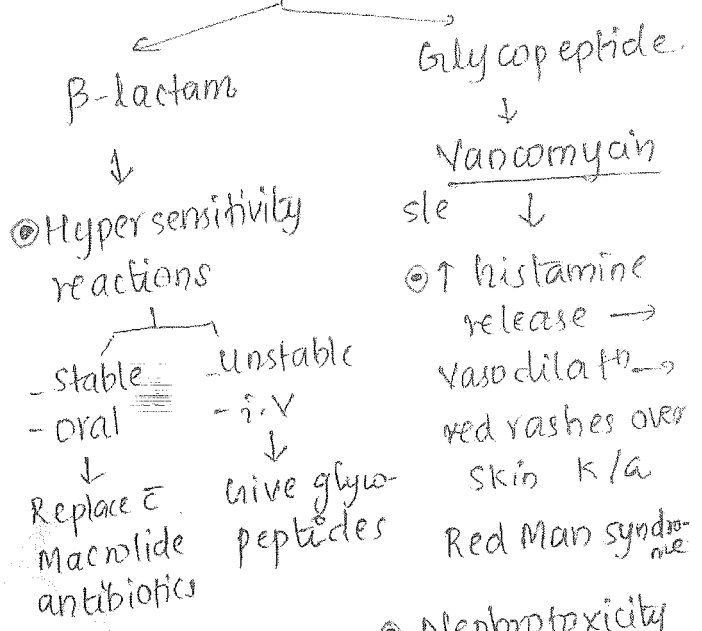 β-lactam
↓
⦿ Hypersensitivity
reactions
- Stable
- oral
↓
Replace c̅
Macrolide
antibiotics
- Unstable
- i.v
↓
Give glyco-
peptides
Glycopeptide.
↓
Vancomycin
s/e ↓
⦿ ↑ histamine
release →
Vasodilatⁿ →
red rashes over
skin k/a
Red Man syndro-
me
⦿ Nephrotoxicity